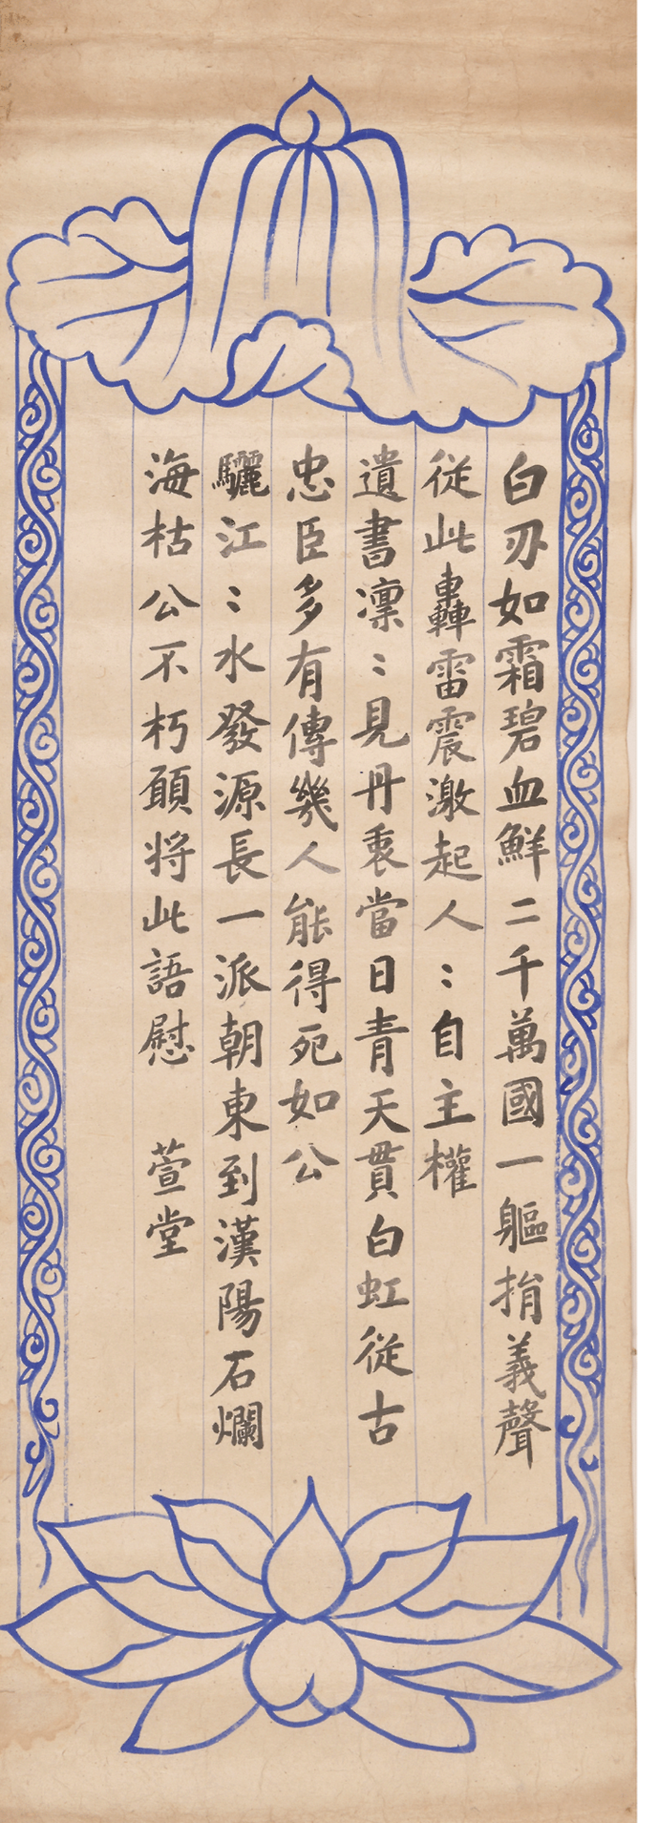 白刃如霜碧血鮮二千萬國一軀捐義聲
從此轟雷震激起人〻自主權
遺書凜〻見丹衷當日青天貫白虹從古
忠臣多有傳幾人能得死如公
驪江〻水發源長一派朝東到漢陽石爛
海枯公不朽願将此語慰 萱堂